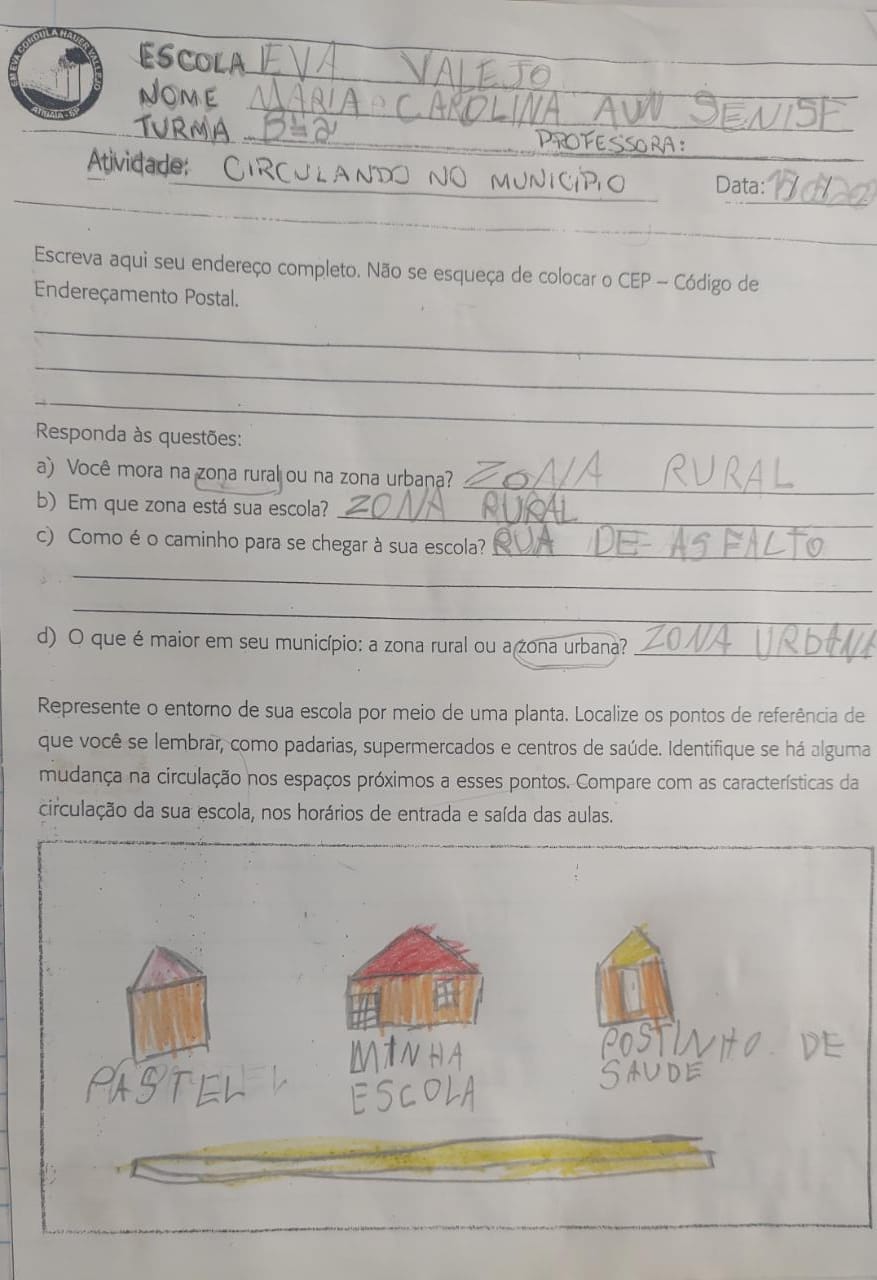 EM EVA CORDULA HAUER VALLEJO
ATIBAIA - SP
ESCOLA EVA VALEJO
NOME MARIA CAROLINA AUN SENISE
TURMA
PROFESSORA:
Atividade: CIRCULANDO NO MUNICÍPIO Data:
Escreva aqui seu endereço completo. Não se esqueça de colocar o CEP – Código de
Endereçamento Postal.
Responda às questões:
a) Você mora na zona rural ou na zona urbana? ZONA RURAL
b) Em que zona está sua escola? ZONA RURAL
c) Como é o caminho para se chegar à sua escola? RUA DE ASFALTO
d) O que é maior em seu município: a zona rural ou a zona urbana? ZONA URBANA
Represente o entorno de sua escola por meio de uma planta. Localize os pontos de referência de
que você se lembrar, como padarias, supermercados e centros de saúde. Identifique se há alguma
mudança na circulação nos espaços próximos a esses pontos. Compare com as características da
circulação da sua escola, nos horários de entrada e saída das aulas.
PASTEL
MINHA
ESCOLA
POSTINHO DE
SAUDE